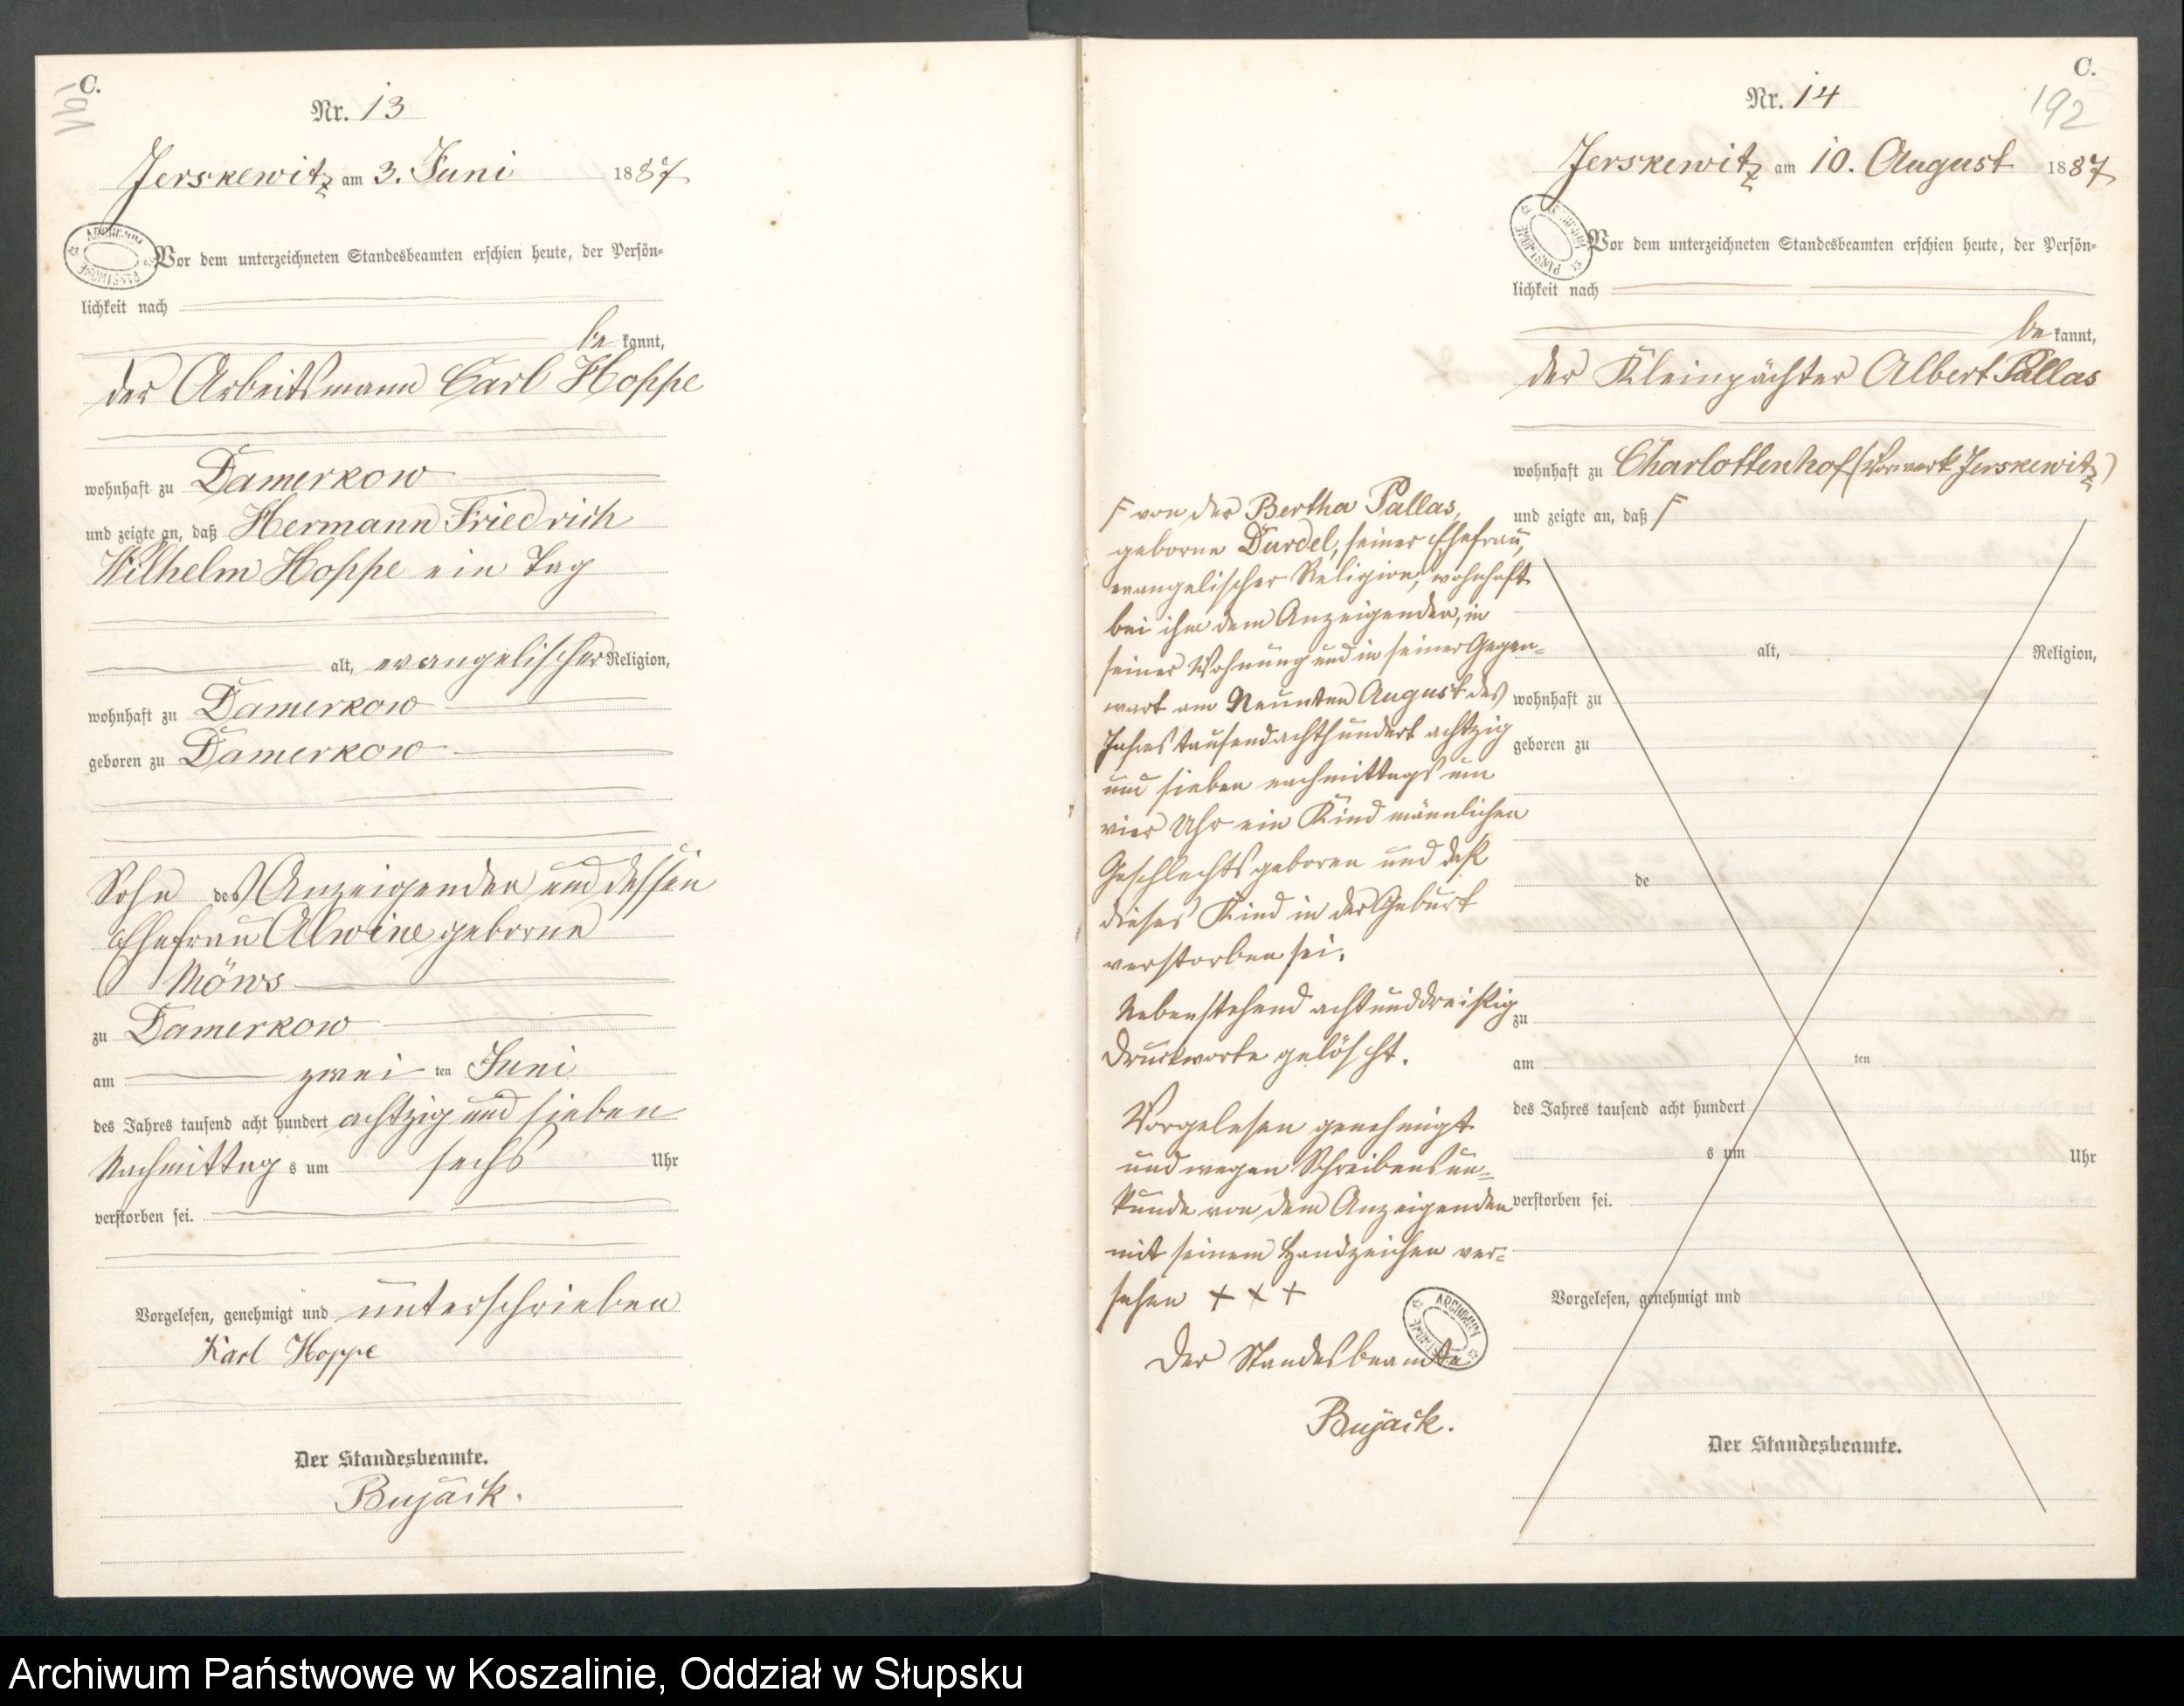 C.
191
Nr. 13
Jerskewitz am 3. Juni 1887
ARCHIWUM PAŃSTWOWE
Vor dem unterzeichneten Standesbeamten erschien heute, der Persön=
lichkeit nach
be kannt,
der Arbeitsmann Carl Hoppe
wohnhaft zu Damerkow
und zeigte an, daß Hermann Friedrich
Wilhelm Hoppe ein Tag
alt, evangelischer Religion,
wohnhaft zu Damerkow
geboren zu Damerkow
Sohn des Anzeigenden und dessen
Ehefrau Alwine geborne
Möws
zu Damerkow
am zwei ten Juni
des Jahres tausend acht hundert achtzig und sieben
Nachmittag s um sechs Uhr
verstorben sei.
Vorgelesen, genehmigt und unterschrieben
Karl Hoppe
Der Standesbeamte.
Bujack.
C.
192
Nr. 14
Jerskewitz am 10. August 1887
ARCHIWUM PAŃSTWOWE
Vor dem unterzeichneten Standesbeamten erschien heute, der Persön=
lichkeit nach
be kannt,
der Kleinpächter Albert Pallas
wohnhaft zu Charlottenhof (Vorwerk Jerskewitz)
und zeigte an, daß F
F von der Bertha Pallas,
geborne Durdel, seiner Ehefrau,
evangelischer Religion, wohnhaft
bei ihm dem Anzeigenden, in
seiner Wohnung und in seiner Gegen=
wart am Neunten August des
Jahres tausendachthundert achtzig
und sieben nachmittags um
vier Uhr ein Kind männlichen
Geschlechts geboren und daß
dieses Kind in der Geburt
verstorben sei.
Nebenstehend achtunddreißig
Druckworte gelöscht.
Vorgelesen genehmigt
und wegen Schreibensun=
kunde von dem Anzeigenden
mit seinem Handzeichen ver=
sehen + + +
Der Standesbeamte
ARCHIWUM PAŃSTWOWE
Bujack.
alt, Religion,
wohnhaft zu
geboren zu
de
zu
am ten
des Jahres tausend acht hundert
s um Uhr
verstorben sei.
Vorgelesen, genehmigt und
Der Standesbeamte.
Archiwum Państwowe w Koszalinie, Oddział w Słupsku